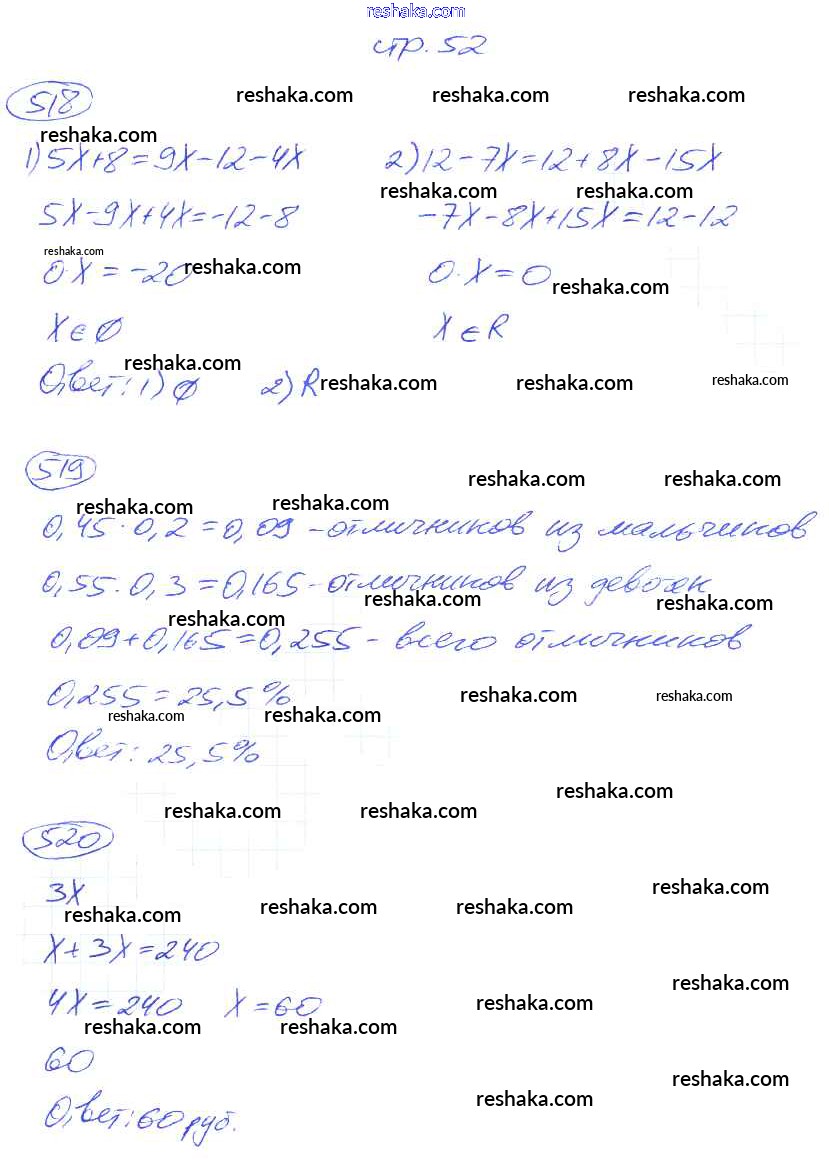 reshaka.com
стр. 52
518
reshaka.com reshaka.com reshaka.com
reshaka.com
1) 5x+8=9x-12-4x 2) 12-7x=12+8x-15x
reshaka.com reshaka.com
5x-9x+4x=-12-8 -7x-8x+15x=12-12
reshaka.com
0·x=-20 reshaka.com 0·x=0 reshaka.com
x∈∅ x∈R
reshaka.com
Ответ: 1) ∅ 2) R reshaka.com reshaka.com reshaka.com
519
reshaka.com reshaka.com
reshaka.com reshaka.com
0,45·0,2=0,09-отличников из мальчиков
0,55·0,3=0,165-отличников из девочек
reshaka.com reshaka.com
reshaka.com
0,09+0,165=0,255-всего отличников
0,255=25,5% reshaka.com reshaka.com
reshaka.com reshaka.com
Ответ: 25,5%
reshaka.com
reshaka.com reshaka.com
520
3x reshaka.com
reshaka.com reshaka.com reshaka.com
x+3x=240
reshaka.com
4x=240 x=60 reshaka.com
reshaka.com reshaka.com
60
reshaka.com
reshaka.com
Ответ: 60 руб.